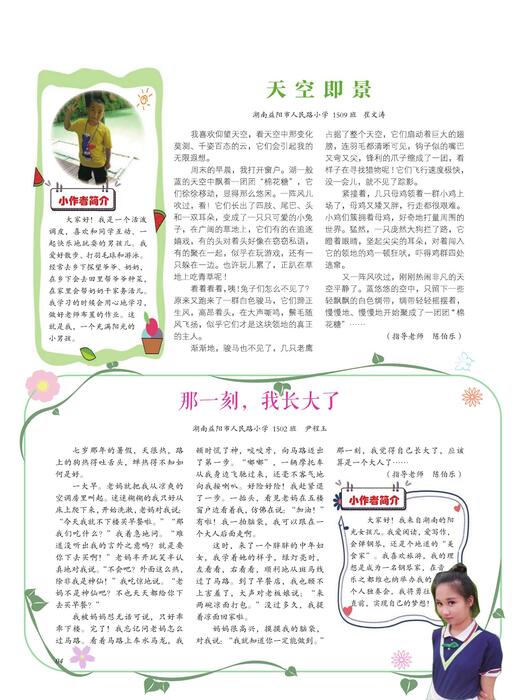 天空即景
湖南益阳市人民路小学 1509 班 崔文涛
我喜欢仰望天空，看天空中那变化
莫测、千姿百态的云，它们会引起我的
无限遐想。
周末的早晨，我打开窗户。湖一般
蓝的天空中飘着一团团“棉花糖”，它
们徐徐移动，显得那么悠闲。一阵风儿
吹过，看！它们长出了四肢、尾巴、头
和一双耳朵，变成了一只只可爱的小兔
子，在广阔的草地上，它们有的在追逐
嬉戏，有的头对着头好像在窃窃私语，
有的聚在一起，似乎在玩游戏，还有一
只躲在一边。也许玩儿累了，正趴在草
地上吃青草呢！
看着看着，咦！兔子们怎么不见了？
原来又跑来了一群白色骏马，它们蹄正
生风，高昂着头，在大声嘶鸣，鬃毛随
风飞扬，似乎它们才是这块领地的真正
的主人。
渐渐地，骏马也不见了，几只老鹰
占据了整个天空，它们扇动着巨大的翅
膀，连羽毛都清晰可见，钩子似的嘴巴
又弯又尖，锋利的爪子缩成了一团，看
样子在寻找猎物呢！它们飞行速度极快，
没一会儿，就不见了踪影。
紧接着，几只母鸡领着一群小鸡上
场了，母鸡又矮又胖，行走都很艰难。
小鸡们簇拥着母鸡，好奇地打量周围的
世界。猛然，一只庞然大狗拦了路，它
瞪着眼睛，竖起尖尖的耳朵，对着闯入
它的领地的鸡一顿狂吠，吓得鸡群四处
逃窜。
又一阵风吹过，刚刚热闹非凡的天
空平静了。蓝悠悠的空中，只留下一些
轻飘飘的白色绸带，绸带轻轻摇摆着，
慢慢地、慢慢地开始聚成了一团团“棉
花糖”……
（指导老师 陈伯乐）
小作者简介
大家好！我是一个活泼
调皮，喜欢和同学互动、一
起快乐地玩耍的男孩儿。我
爱好散步、打羽毛球和游泳。
经常去乡下探望爷爷、奶奶，
在乡下会去田里帮爷爷种菜，
在家里会帮奶奶干家务活儿。
我学习的时候会用心地学习，
做好老师布置的作业。这
就是我，一个充满阳光的
小男孩。
那一刻，我长大了
湖南益阳市人民路小学 1502 班 尹程玉
七岁那年的暑假，天很热，路
上的狗热得吐舌头，蝉热得不知如
何是好。
一大早，老妈就把我从凉爽的
空调房里叫起。这迷糊糊的我只好从
床上爬下来，开始洗漱，老妈对我说：
“今天我就不下楼买早餐啦。”“那
我们吃什么？”我着急地问。“难
道没听出我的言外之意吗？就是要
你下去买啊！”老妈半开玩笑半认
真地对我说。“不会吧？外面这么热，
除非我是神仙！”我吃惊地说。“老
妈不是神仙吧？不也天天都给你下
去买早餐？”
我被妈妈怼无话可说，只好乖
乖下楼。完了！我忘记问老妈怎么
过马路。看着马路上车水马龙，我
顿时慌了神，咬咬牙，向马路迈出
了第一步。“嘟嘟”，一辆摩托车
从我身边飞驰过来，还毫不客气地
向我按喇叭。好险好险！我赶紧退
了一步。一抬头，看见老妈在五楼
窗户边看着我，仿佛在说：“加油！”
有啦！我一拍脑袋，我可以跟在一
个大人后面走啊。
这时，来了一个胖胖的中年妇
女，我学着她的样子，绿灯亮时，
左看看，右看看，顺利地从斑马线
过了马路。到了早餐店，我也顾不
上害羞了，大声对老板娘说：“来
两碗凉面打包。”没过多久，我提
着凉面回家啦。
妈妈很高兴，摸摸我的脑袋，
对我说：“我就知道你一定能做到。”
那一刻，我觉得自己长大了，应该
算是一个大人了……
（指导老师 陈伯乐）
小作者简介
大家好！我来自湖南的阳
光女孩儿。我爱阅读，爱写作，
会弹钢琴，还是个地道的“美
食家”。我喜欢旅游。我的理
想是成为一名钢琴家，在音
乐之都维也纳举办我的
个人独奏会，我将勇往
直前，实现自己的梦想！
04